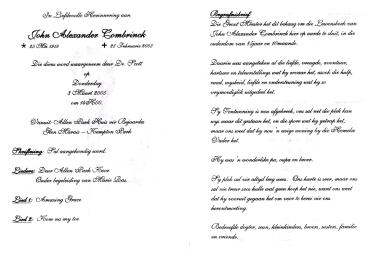 In Liefdevolle Herinnering aan
John Alexander Combrinck
* 25 Mei 1919
+ 27 Februarie 2005
Die diens word waargeneem deur Dr. Scott
op
Donderdag
3 Maart 2005
om 14H00.
Vanuit: Allen Park Huis vir Bejaardes
Glen Marais – Kempton Park
Skriflesing: Sal aangekondig word.
Liedere: Deur Allen Park Koor
Onder begeleiding van Marie Ras.
Lied 1: Amazing Grace
Lied 2: Kom na my toe
Begrafnisbrief
Die Groot Meester het dit behang om die Lewensboek van
John Alexander Combrinck hier op aarde te sluit, in die
ouderdom van 85jaar en 10maande.
Daarin was aangeteken al die liefde, vreugde, avonture,
hartseer en teleurstellings wat hy ervaar het, asook die hulp,
raad, wysheid, liefde en ondersteuning wat hy so
vrymoediglik uitgedeel het.
Sy Tentwoning is nou afgebreek, ons sal net die plek kan
wys waar dit gestaan het, en die spore wat hy getrap het,
maar ons weet dat hy nou 'n ewige woning by die Hemelse
Vader het.
Hy was 'n wonderlike pa, oupa en broer.
Sy plek sal nie altyd leeg wees. Ons harte is seer, maar ons
sal nie treur soos hulle wat geen hoop het nie, want ons weet
dat hy vooruit gegaan het om voor te berei vir ons
herontmoeting.
Bedroefde dogter, seun, kleinkinders, broer, susters, familie
en vriende.